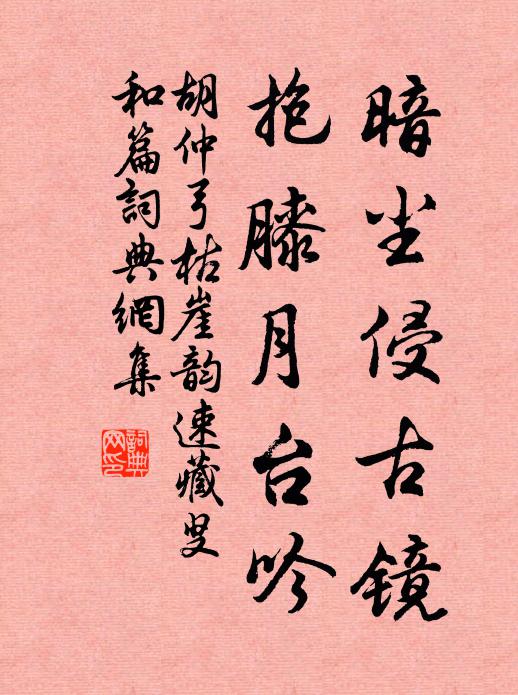 暗尘侵古镜
抱膝月台吟
胡仲弓枯崖韵速藏叟
和篇詞典網集
詞典網印